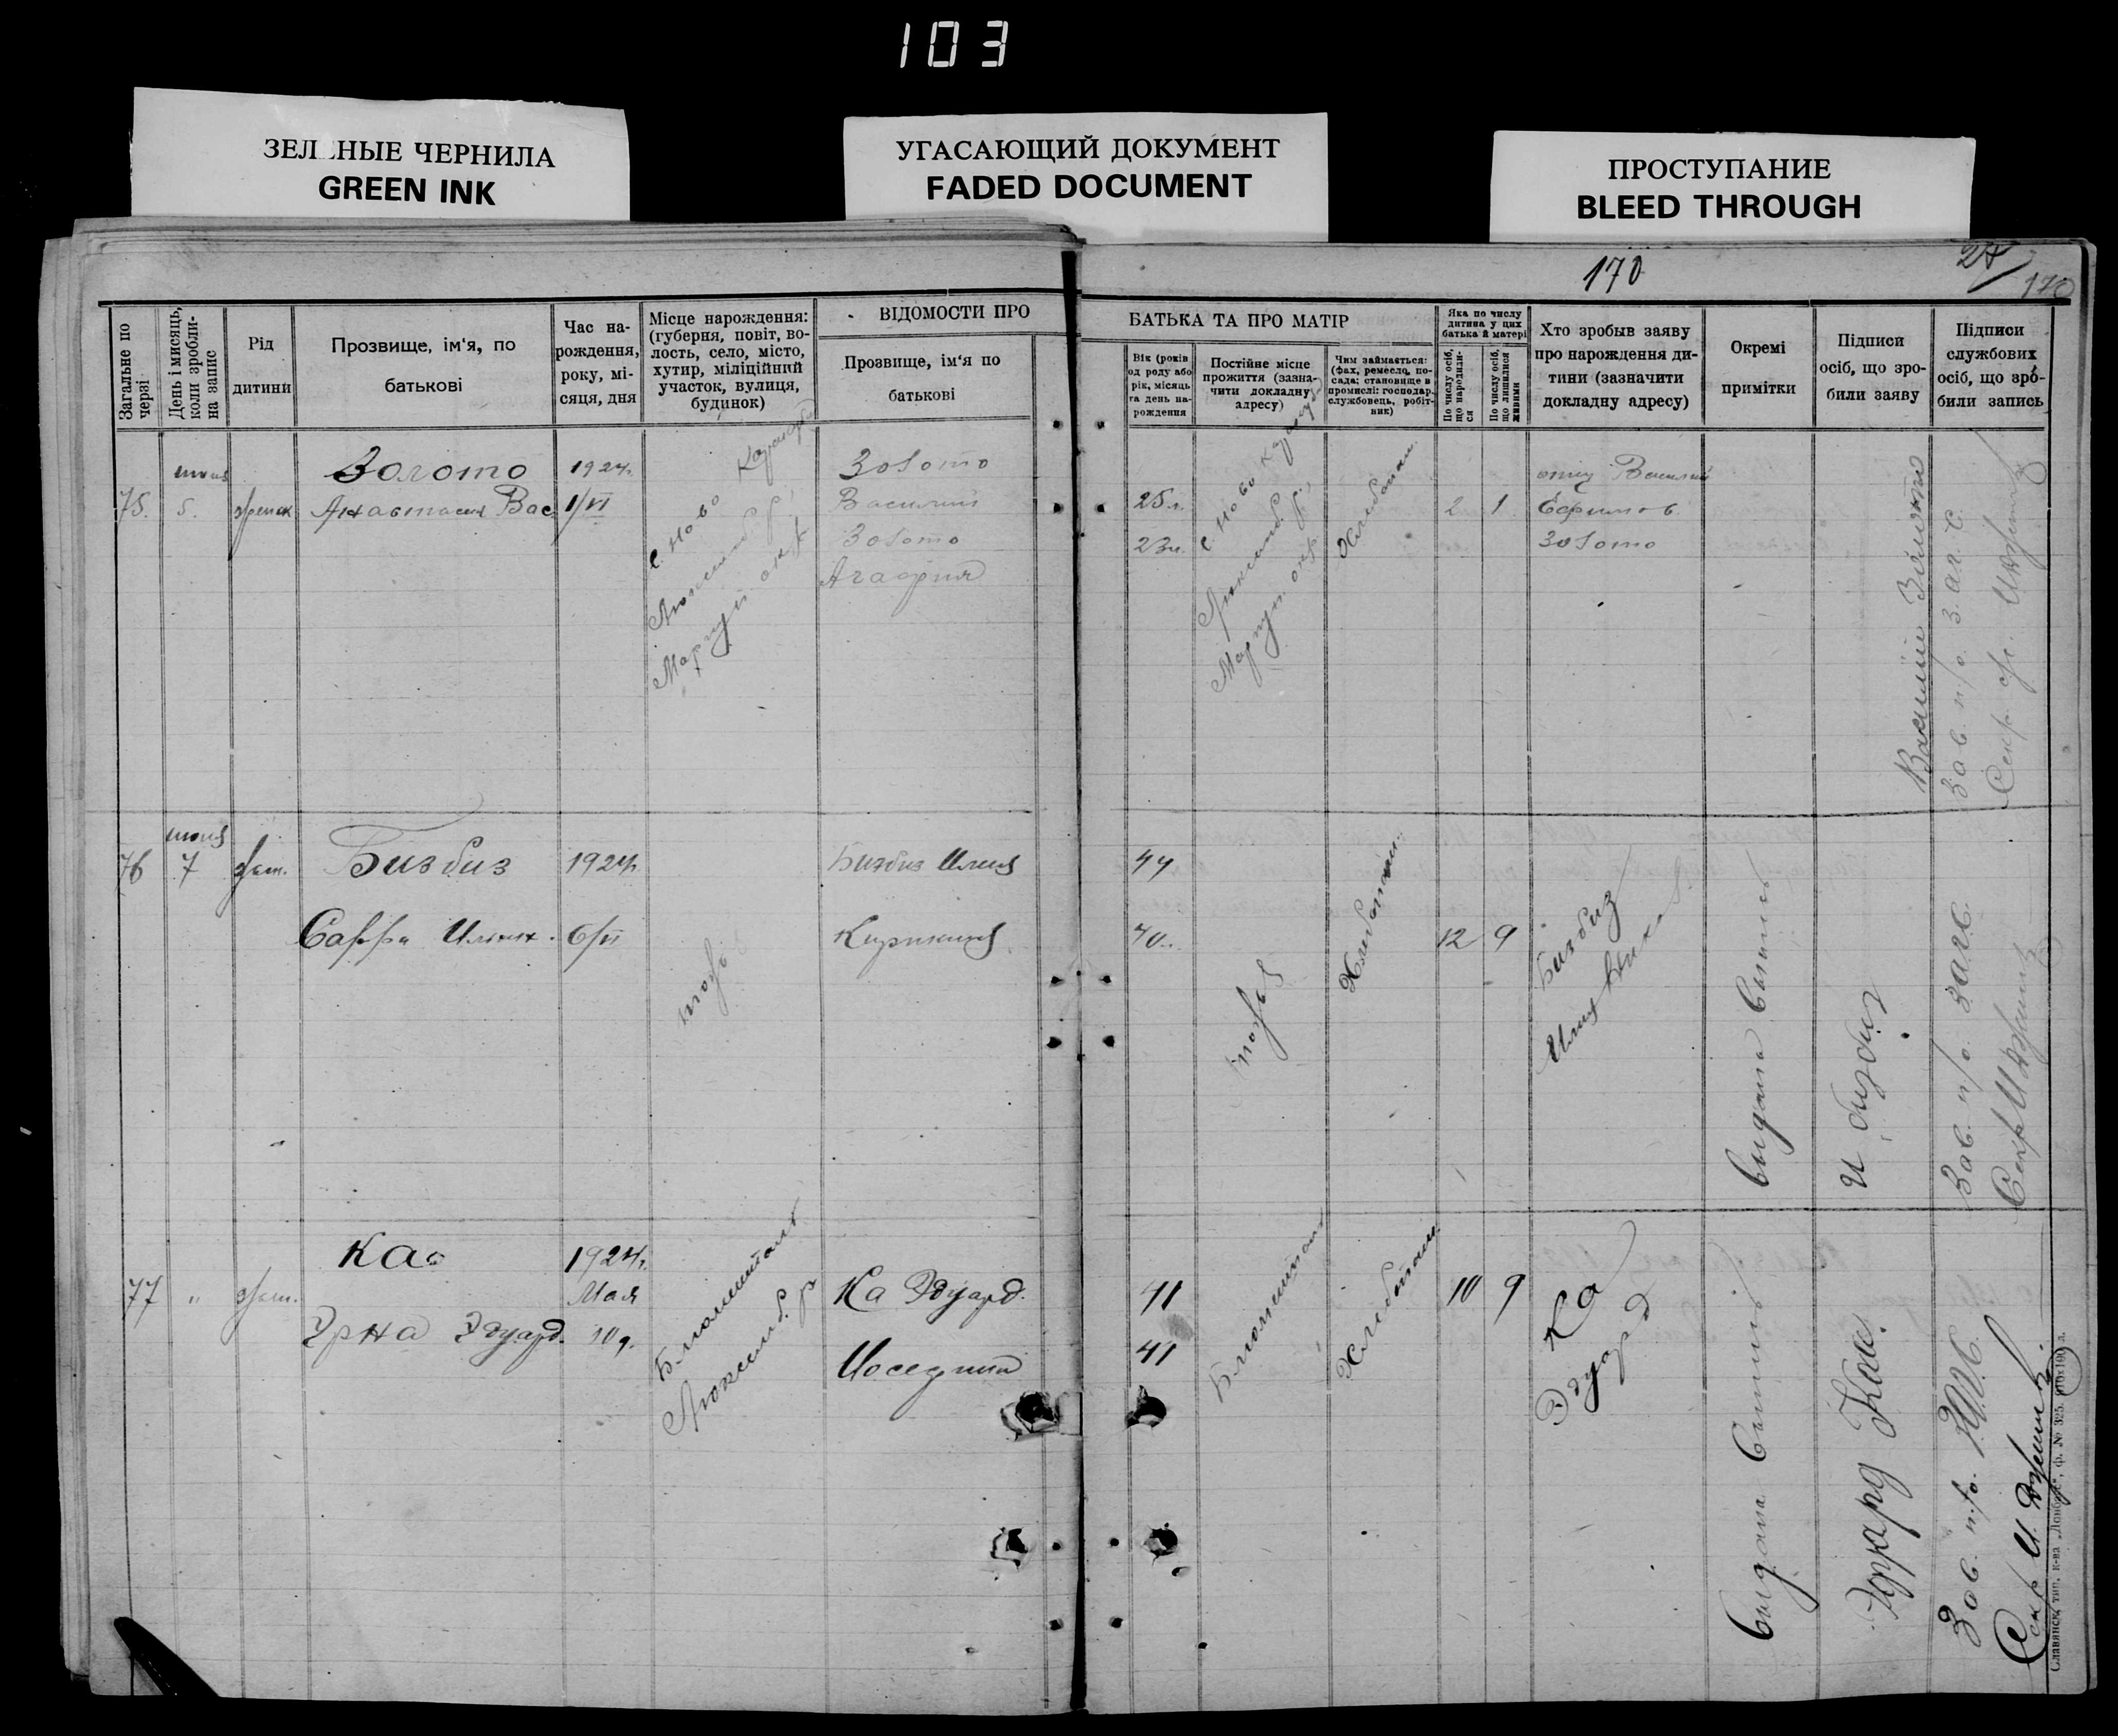 103
ЗЕЛ НЫЕ ЧЕРНИЛА
GREEN INK
УГАСАЮЩИЙ ДОКУМЕНТ
FADED DOCUMENT
ПРОСТУПАНИЕ
BLEED THROUGH
170
170
Загальне по черзі
День і мисяць, коли зробли- на запис
Рід
дитини
Прозвище, ім'я, по
батькові
Час на-
рождення,
року, мі-
сяця, дня
Місце нарождення:
(губерня, повіт, во-
лость, село, місто,
хутир, міліційний
участок, вулиця,
будинок)
ВІДОМОСТИ ПРО
Прозвище, ім'я по
батькові
БАТЬКА ТА ПРО МАТІР
Вік (років
од роду або
рік, місяць
та день на-
рождення
Постійне місце
прожиття (зазна-
чити докладну
адресу)
Чим займається:
(фах, ремесло, по-
сада; становище в
промислі: господар,
службовець, робіт-
ник)
Яка по числу
дитина у цих
батька й матері
По числу осіб,
що народили-
ся
По числу осіб,
що лишилися
живими
Хто зробыв заяву
про нарождення ди-
тини (зазначити
докладну адресу)
Окремі
примітки
Підписи
осіб, що зро-
били заяву
Підписи
службових
осіб, що зро-
били запись
75.
июня
5.
женск
Золото
Анастасия Вас
1924г.
1/VI
с. Ново Каракуб
Люксембр.
Мариуп окр
Золото
Василий
Золото
Агафия
25 л.
23 л.
с. Ново Каракуб
Люксемб. р.
Мариуп. окр
Хлебопаш.
2
1
отец Василий
Ефимов
Золото
Василий Золото
Зав. п/о. З.А.Г.С.
Секр
76
июня
7
жен.
Бизбиз
Сарра Ильин.
1924г
6/VI
тож
Бизбиз Илия
Кирикия
44
40.
тож
Хлебопаш.
12
9
Бизбиз
Илия
Выдана Выпись
И бизбиз
Зав. п/о. ЗАГС.
Секр
77
"
жен.
Каа
Эрна Эдуард.
1924г.
Мая
10 д.
Блюменталь
Люксемб. р
Ка Эдуард.
Иосефина
41
41
Блюменталь
Хлебопаш.
10
9
Ка
Эдуард
Выдана Выпись
Эдуард Каа.
Зав. п/о. ЗАГС.
Секр И.
Славянск, тип. к-ва „Донбас", ф. № 325. (10×100) л.